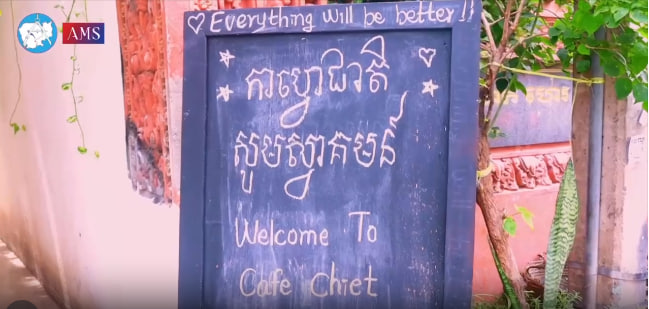 AMS
Everything will be better !!
កាហ្វេជាតិ
សូមស្វាគមន៍
Welcome To
Cafe Chiet